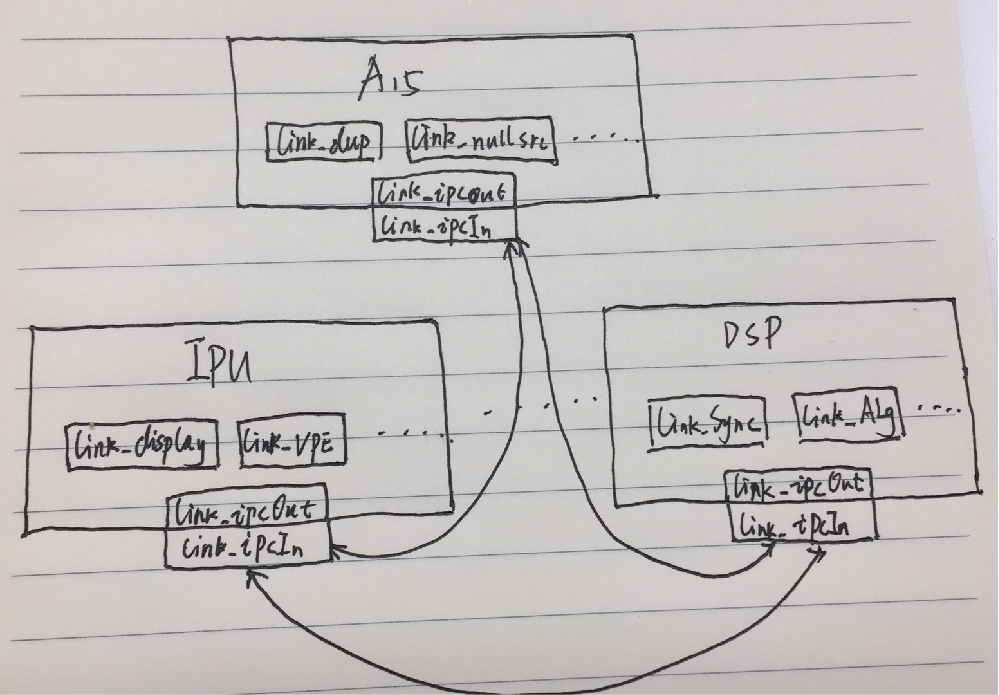 A15
link_dup link_nullsrc .....
link_ipcout
link_ipcIn
IPU
link_display link_VPE .....
link_ipcOut
link_ipcIn
.....
DSP
link_Sync link_ALg ....
link_ipcOut
link_ipcIn